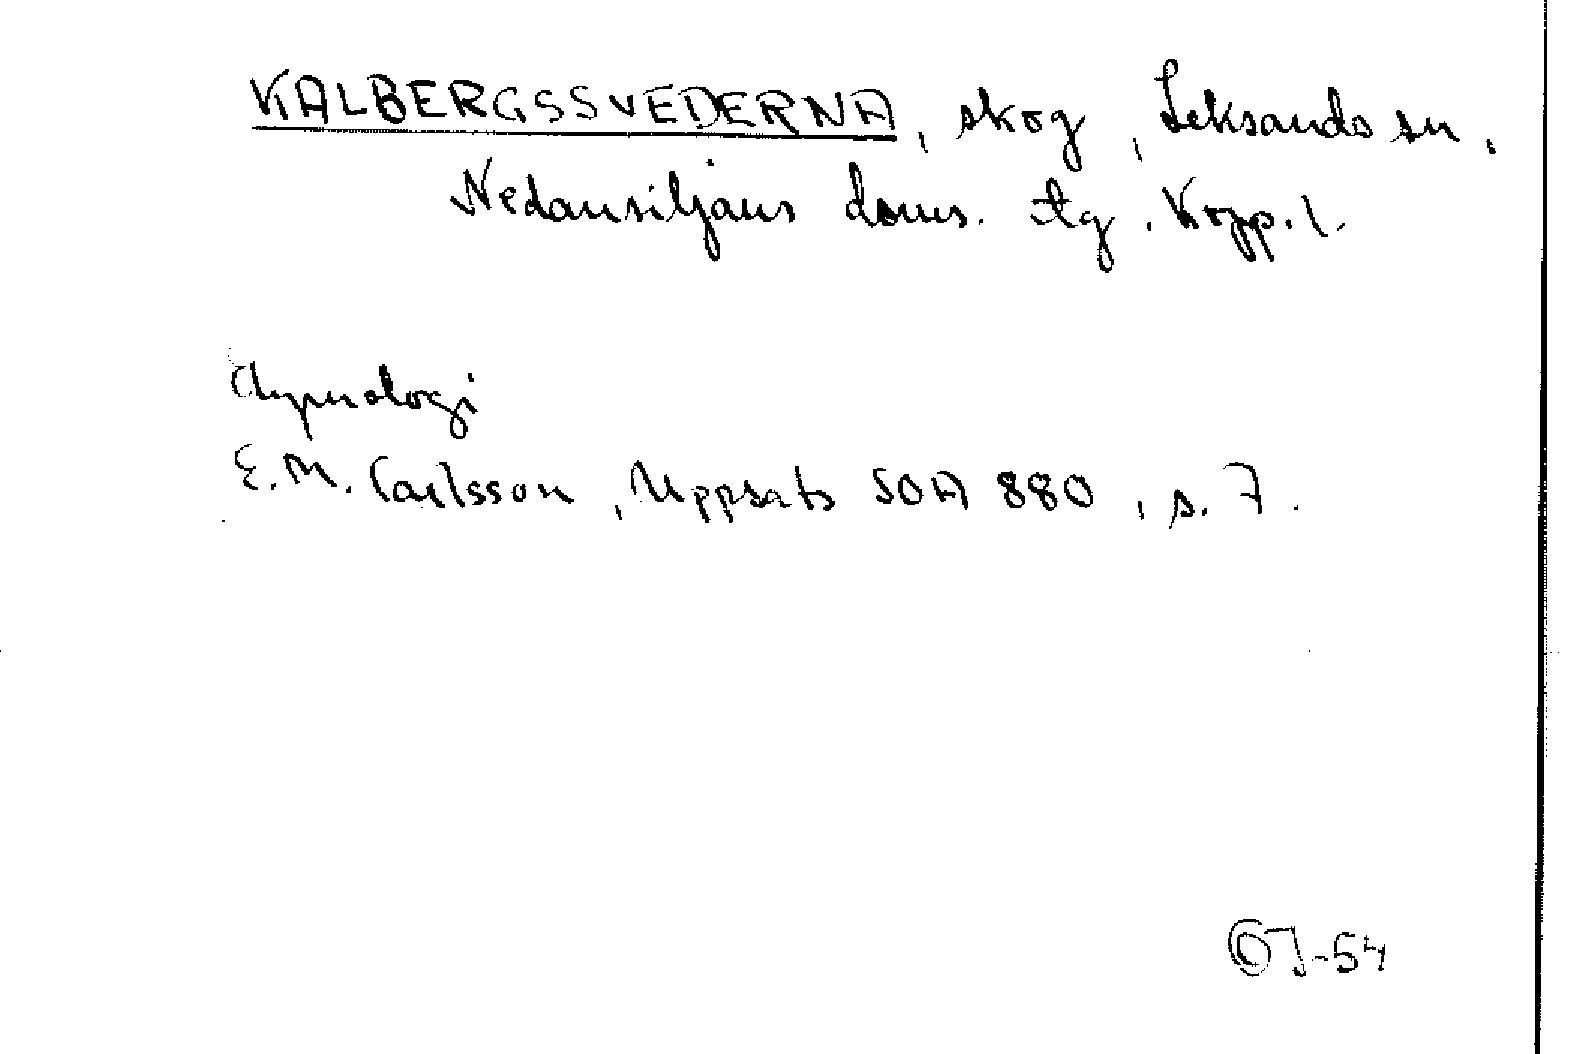 KALBERGSSVEDERNA, skog, Leksands sn,
Nedansiljans doms. tg. Kopp. l.
Etymologi
E.M. Carlsson, Uppsats SOA 880, s. 7.
-54